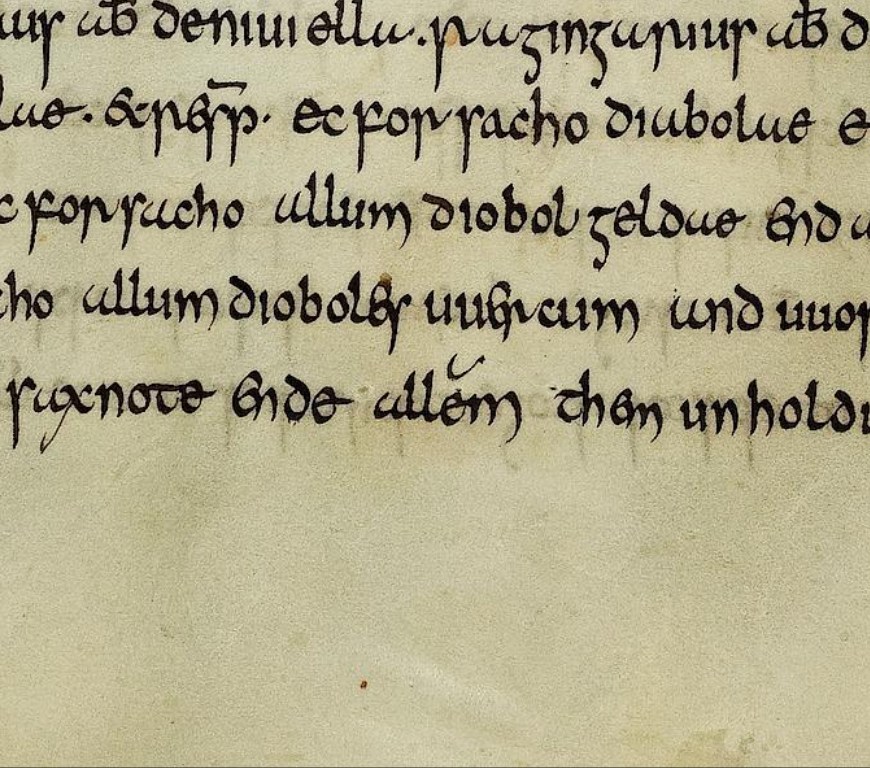 ius ab̄ deniuiella. ragingarius ab̄ d
lae. & resp̄. ec forsacho diabolae e
c forsacho allum diobol geldae end a
cho allum dioboles uuercum and uuor
saxnote ende allem them unholdu